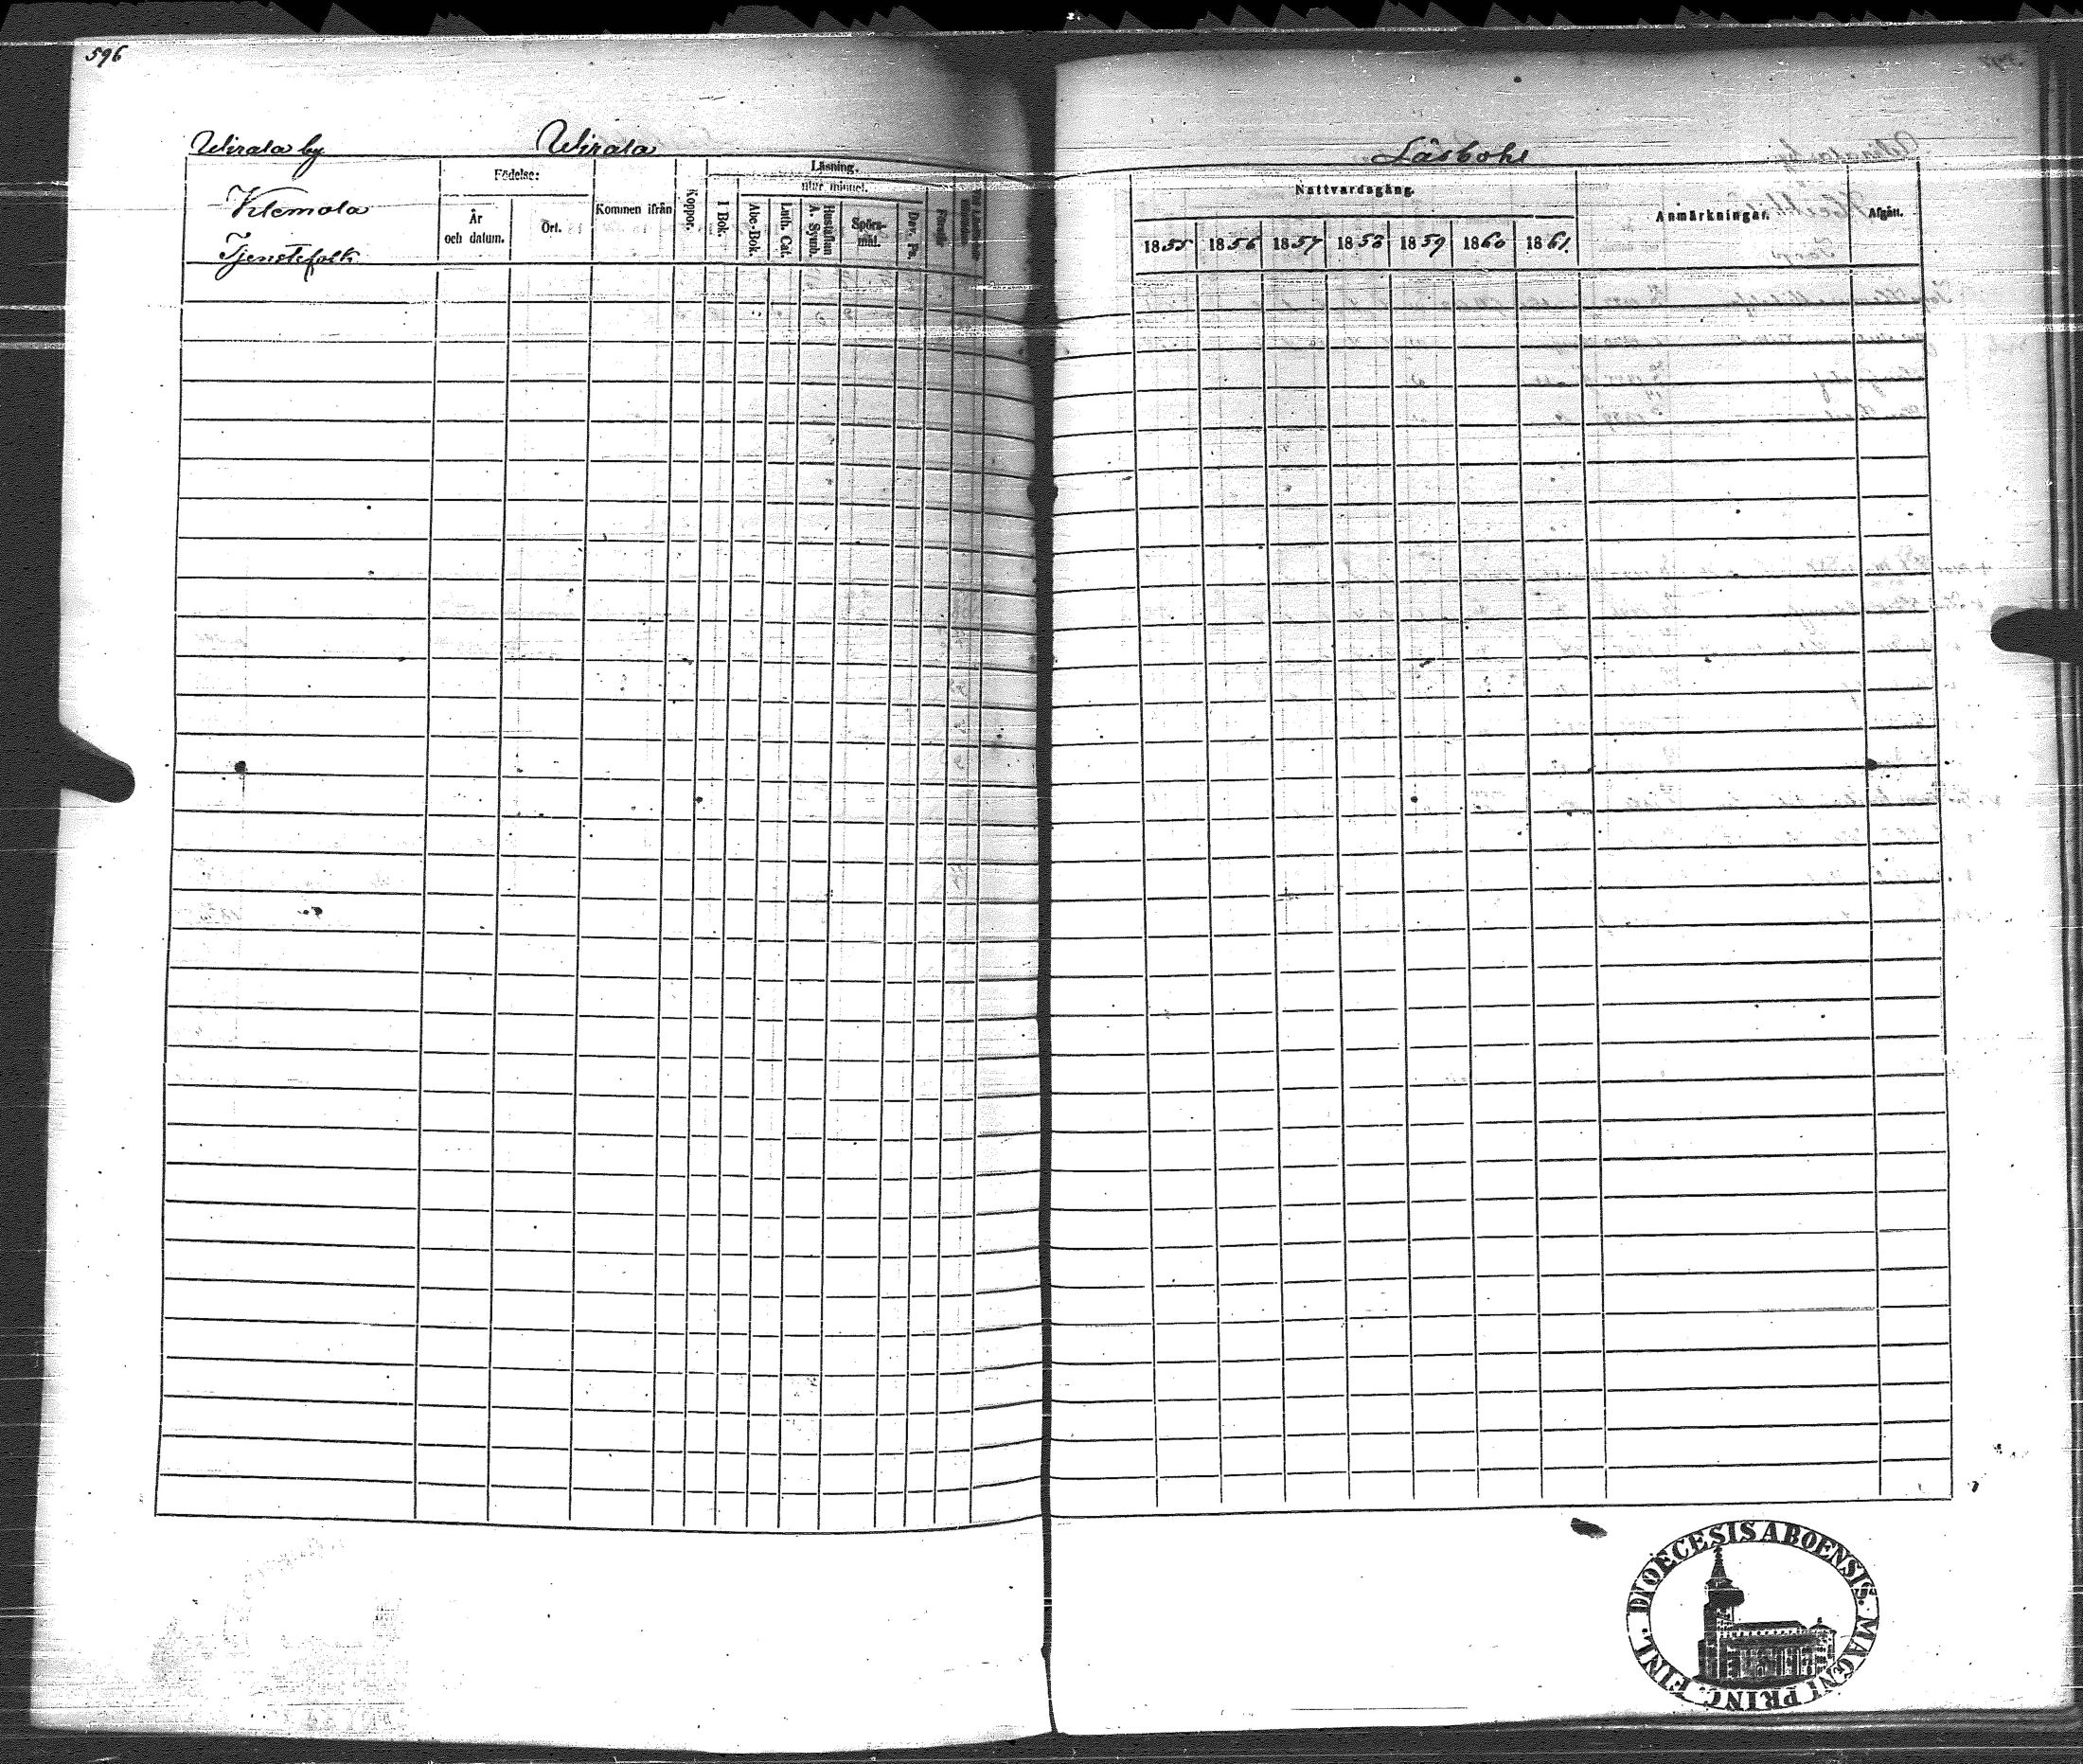 596
Wirala by
Wirala
Låsbohl
Klemola
Tjenstefolk
Födelse:
År
och datum.
Ort.
Kommen ifrån
Koppor.
Läsning.
utur minnet.
I Bok.
Abc-Bok.
Luth. Cat.
Hustaflan
A. Symb.
Spörs-
mål.
Dav. Ps.
Förstår
Nattvardsgång.
1855 1856 1857 1858 1859 1860 1861.
Anmärkningar.
Afgått.
DIOECESIS ABOENSIS. MAGNI PRINC. FINL.